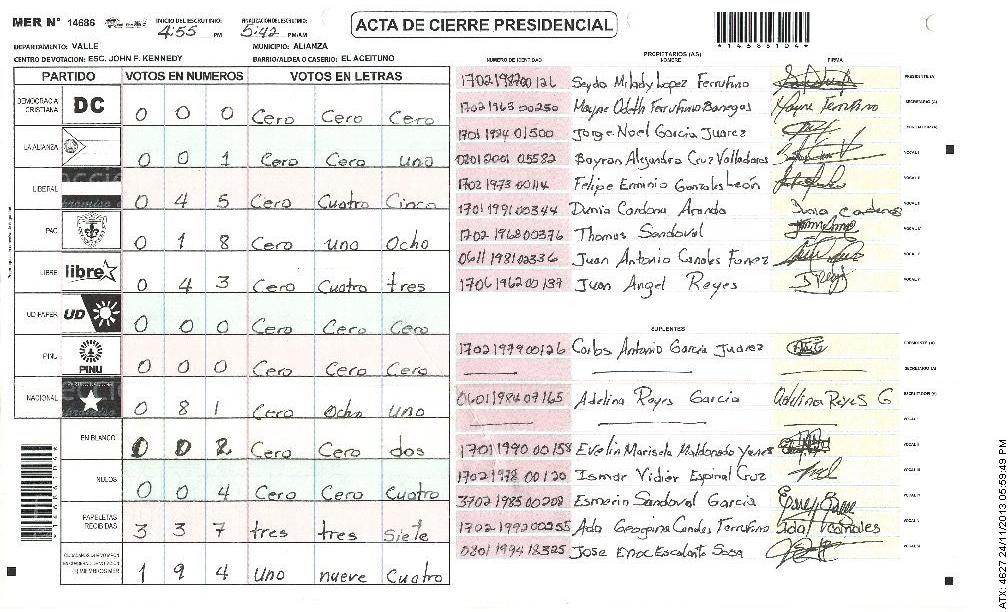 MER N° 14686
INICIO DEL ESCRUTINIO: 4:55 PM
FINALIZACION DEL ESCRUTINIO: 5:42 PM/AM
ACTA DE CIERRE PRESIDENCIAL
*14686104*
DEPARTAMENTO: VALLE
MUNICIPIO: ALIANZA
CENTRO DE VOTACION: ESC. JOHN F. KENNEDY
BARRIO/ALDEA O CASERIO: EL ACEITUNO
PARTIDO VOTOS EN NUMEROS VOTOS EN LETRAS
DEMOCRACIA CRISTIANA DC 0 0 0 Cero Cero Cero
LA ALIANZA 0 0 1 Cero Cero uno
LIBERAL 0 4 5 Cero Cuatro Cinco
PAC 0 1 8 Cero uno Ocho
LIBRE libre 0 4 3 Cero Cuatro tres
UD-FAPER UD 0 0 0 Cero Cero Cero
PINU PINU 0 0 0 Cero Cero Cero
NACIONAL 0 8 1 Cero Ocho uno
EN BLANCO 0 0 2 Cero Cero dos
NULOS 0 0 4 Cero Cero Cuatro
PAPELETAS RECIBIDAS 3 3 7 tres tres Siete
1 9 4 Uno nueve Cuatro
PROPIETARIOS (AS)
NUMERO DE IDENTIDAD NOMBRE FIRMA
1702198200126 Seyda Milady Lopez Ferrufino PRESIDENTE (A)
1702 1963 00250 Mayne Odeth Ferrufino Banegas SECRETARIO (A)
1701 1994 01500 Jorge Noel Garcia Juarez ESCRUTADOR (A)
0201 2001 05582 Bayron Alejandro Cruz Valladares VOCAL I
1702 1973 00114 Felipe Erminio Gonzales León VOCAL II
1701 1991 00344 Dunia Cardona Aranda
1702 1968 00376 Thomas Sandoval
0611 1981 02336 Juan Antonio Canales Funez
1706 1962 00137 Juan Angel Reyes
SUPLENTES
1702 1979 00126 Carlos Antonio Garcia Juarez PRESIDENTE (A)
SECRETARIO (A)
0601 1984 07165 Adelina Reyes Garcia Adelina Reyes G ESCRUTADOR (A)
VOCAL I
1701 1990 00158 Evelin Marisela Maldonado Yanes VOCAL II
1702 1978 00120 Ismar Vidier Espinal Cruz VOCAL III
3702 1985 00202 Esmerin Sandoval Garcia
1702 1992 00255 Ada Georgina Canales Ferrufino
0801 1994 18325 Jose Enoc Escalante Sosa
ATX: 4627 24/11/2013 05:59:49 PM